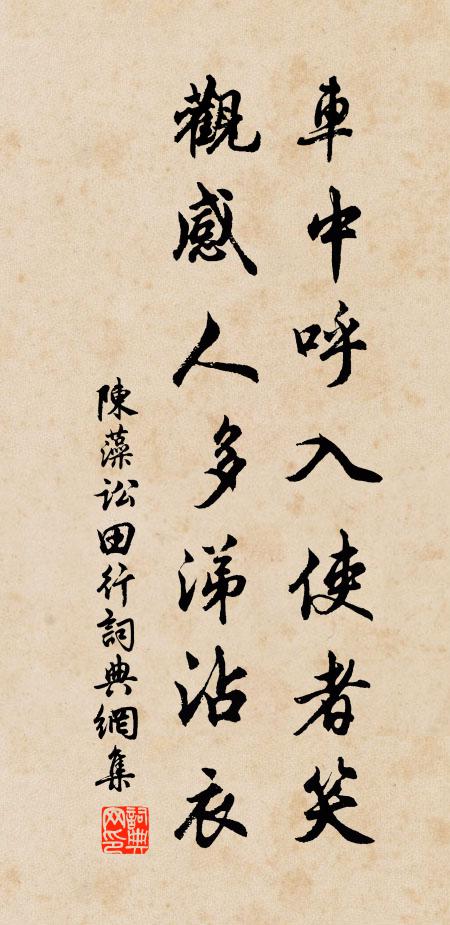 車中呼入使者笑
觀感人多涕沾衣
陳藻訟田行詞典網集
詞典網印